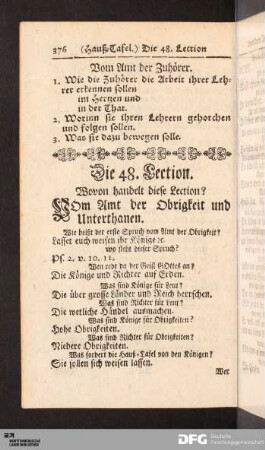 376 (Hauß-Tafel.) Die 48. Lection
Vom Amt der Zuhörer.
1. Wie die Zuhörer die Arbeit ihrer Leh-
rer erkennen sollen
im Hertzen und
in der That.
2. Worinn sie ihren Lehrern gehorchen
und folgen sollen.
3. Was sie dazu bewegen solle.
Die 48. Lection.
Wovon handelt diese Lection?
Vom Amt der Obrigkeit und
Unterthanen.
Wie heißt der erste Spruch vom Amt der Obrigkeit?
Lasset euch weisen ihr Könige ꝛc.
wo steht dieser Spruch?
Ps. 2. v. 10. 11.
Wen redt da der Geist GOttes an?
Die Könige und Richter auf Erden.
Was sind Könige für Leut?
Die über grosse Länder und Reich herrschen.
Was sind Richter für Leut?
Die weltliche Händel ausmachen.
Was sind Könige für Obrigkeiten?
Hohe Obrigkeiten.
Was sind Richter für Obrigkeiten?
Niedere Obrigkeiten.
Was fordert die Hauß-Tafel von den Königen?
Sie sollen sich weisen lassen.
Wer
DFG Deutsche
Forschungsgemeinschaft